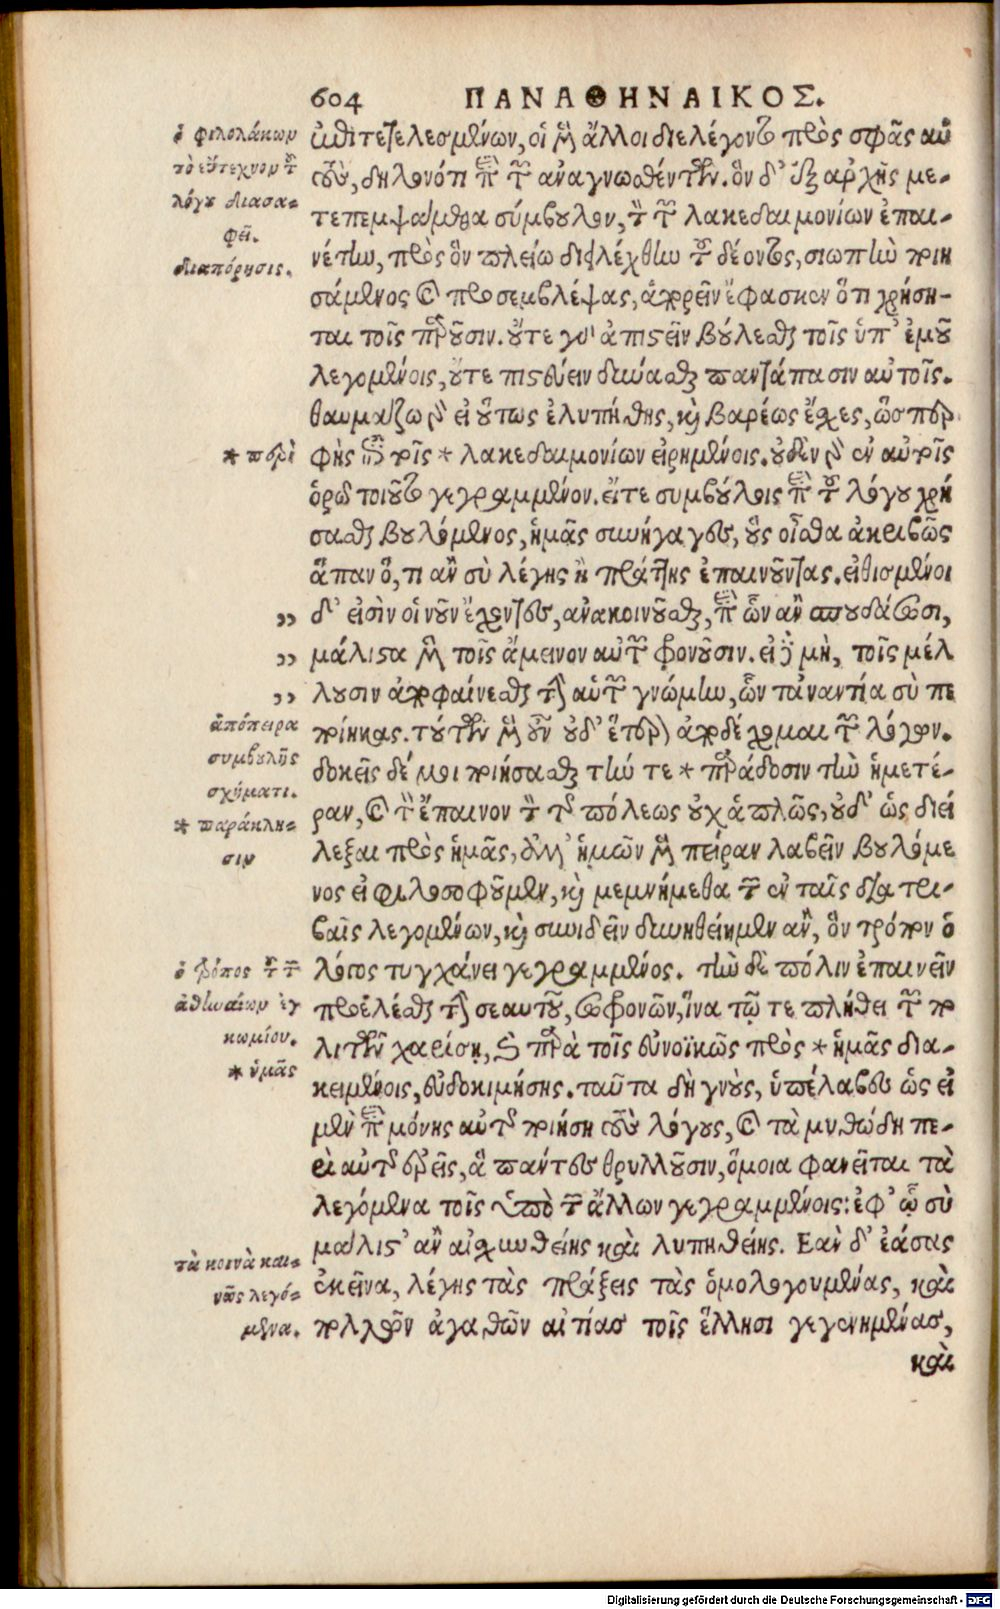 604 ΠΑΝΑΘΗΝΑΙΚΟΣ.
τετελεσμένων, οἱ μὲν ἄλλοι διελέγοντο πρὸς σφᾶς αὑ
τοὺς, δηλονότι περὶ τῶν ἀναγνωσθέντων. ὃν δ' ἐξ ἀρχῆς με-
τεπεμψάμεθα σύμβουλον, τὸν τῶν λακεδαιμονίων ἐπαι-
νέτην, πρὸς ὃν πλείω διειλέχθην τοῦ δέοντος, σιωπὴν ποιη
σάμενος καὶ προσεμβλέψας, ἀπορεῖν ἔφασκεν ὅτι χρήση-
ται τοῖς παροῦσιν. οὔτε γὰρ ἀπιστεῖν βούλεσθαι τοῖς ὑπ' ἐμοῦ
λεγομένοις, οὔτε πιστεύειν δύνασθαι παντάπασιν αὐτοῖς.
θαυμάζω γὰρ εἰ οὕτως ἐλυπήθης, καὶ βαρέως ἔσχες, ὥσπερ
φῂς ἐπὶ τοῖς * λακεδαιμονίων εἰρημένοις. οὐδὲν γὰρ ἐν αὐτοῖς
ὁρῶ τοιοῦτο γεγραμμένον. εἴτε συμβούλοις περὶ τοῦ λόγου χρή
σασθαι βουλόμενος, ἡμᾶς συνήγαγες, οὓς οἶσθα ἀκριβῶς
ἅπαν ὅ, τι ἂν σὺ λέγῃς ἢ πράττῃς ἐπαινοῦντας. εἰθισμένοι
δ' εἰσὶν οἱ νοῦν ἔχοντες, ἀνακοινοῦσθαι, περὶ ὧν ἂν σπουδάζωσι,
μάλιστα μὲν τοῖς ἄμεινον αὑτῶν φρονοῦσιν. εἰ δὲ μὴ, τοῖς μέλ
λουσιν ἀποφαίνεσθαι τὴν αὑτῶν γνώμην, ὧν τἀναντία σὺ πε
ποίηκας. τούτων μὲν οὖν οὐδ' ἕτερον ἀποδέχομαι τῶν λόγων.
δοκεῖς δέ μοι ποιήσασθαι τήν τε * παράδοσιν τὴν ἡμετέ-
ραν, καὶ τὸν ἔπαινον τὸν τῆς πόλεως οὐχ ἁπλῶς, οὐδ' ὡς διεί
λεξαι πρὸς ἡμᾶς, ἀλλ' ἡμῶν μὲν πεῖραν λαβεῖν βουλόμε
νος εἰ φιλοσοφοῦμεν, καὶ μεμνήμεθα τῶν ἐν ταῖς διατρι-
βαῖς λεγομένων, καὶ συνιδεῖν δυνηθείημεν ἂν, ὃν τρόπον ὁ
λόγος τυγχάνει γεγραμμένος. τὴν δὲ πόλιν ἐπαινεῖν
προελέσθαι τὴν σεαυτοῦ, σωφρονῶν, ἵνα τῷ τε πλήθει τῶν πο
λιτῶν χαρίσῃ, καὶ παρὰ τοῖς εὐνοϊκῶς πρὸς * ἡμᾶς δια-
κειμένοις, εὐδοκιμήσῃς. ταῦτα δὴ γνοὺς, ὑπέλαβες ὡς εἰ
μὲν περὶ μόνης αὐτῆς ποιήσῃ τοὺς λόγους, καὶ τὰ μυθώδη πε-
ρὶ αὐτῆς ἐρεῖς, ἃ πάντες θρυλλοῦσιν, ὅμοια φανεῖται τὰ
λεγόμενα τοῖς ὑπὸ τῶν ἄλλων γεγραμμένοις: ἐφ' ᾧ σὺ
μάλιστ' ἂν αἰσχυνθείης καὶ λυπηθείης. Ἐὰν δ' ἐάσας
ἐκεῖνα, λέγῃς τὰς πράξεις τὰς ὁμολογουμένας, καὶ
πολλῶν ἀγαθῶν αἰτίας τοῖς ἕλλησι γεγενημένας,
καὶ
ὁ φιλολάκων
τὸ εὔτεχνον τοῦ
λόγου διασα-
φεῖ.
διαπόρησις.
* περὶ
„
„
„
ἀπόπειρα
συμβουλῆς
σχήματι.
* παράκλη-
σιν
ὁ τρόπος τοῦ τῶν
ἀθηναίων ἐγ
κωμίου.
* ὑμᾶς
τὰ κοινὰ και-
νῶς λεγό-
μενα.
Digitalisierung gefördert durch die Deutsche Forschungsgemeinschaft - DFG